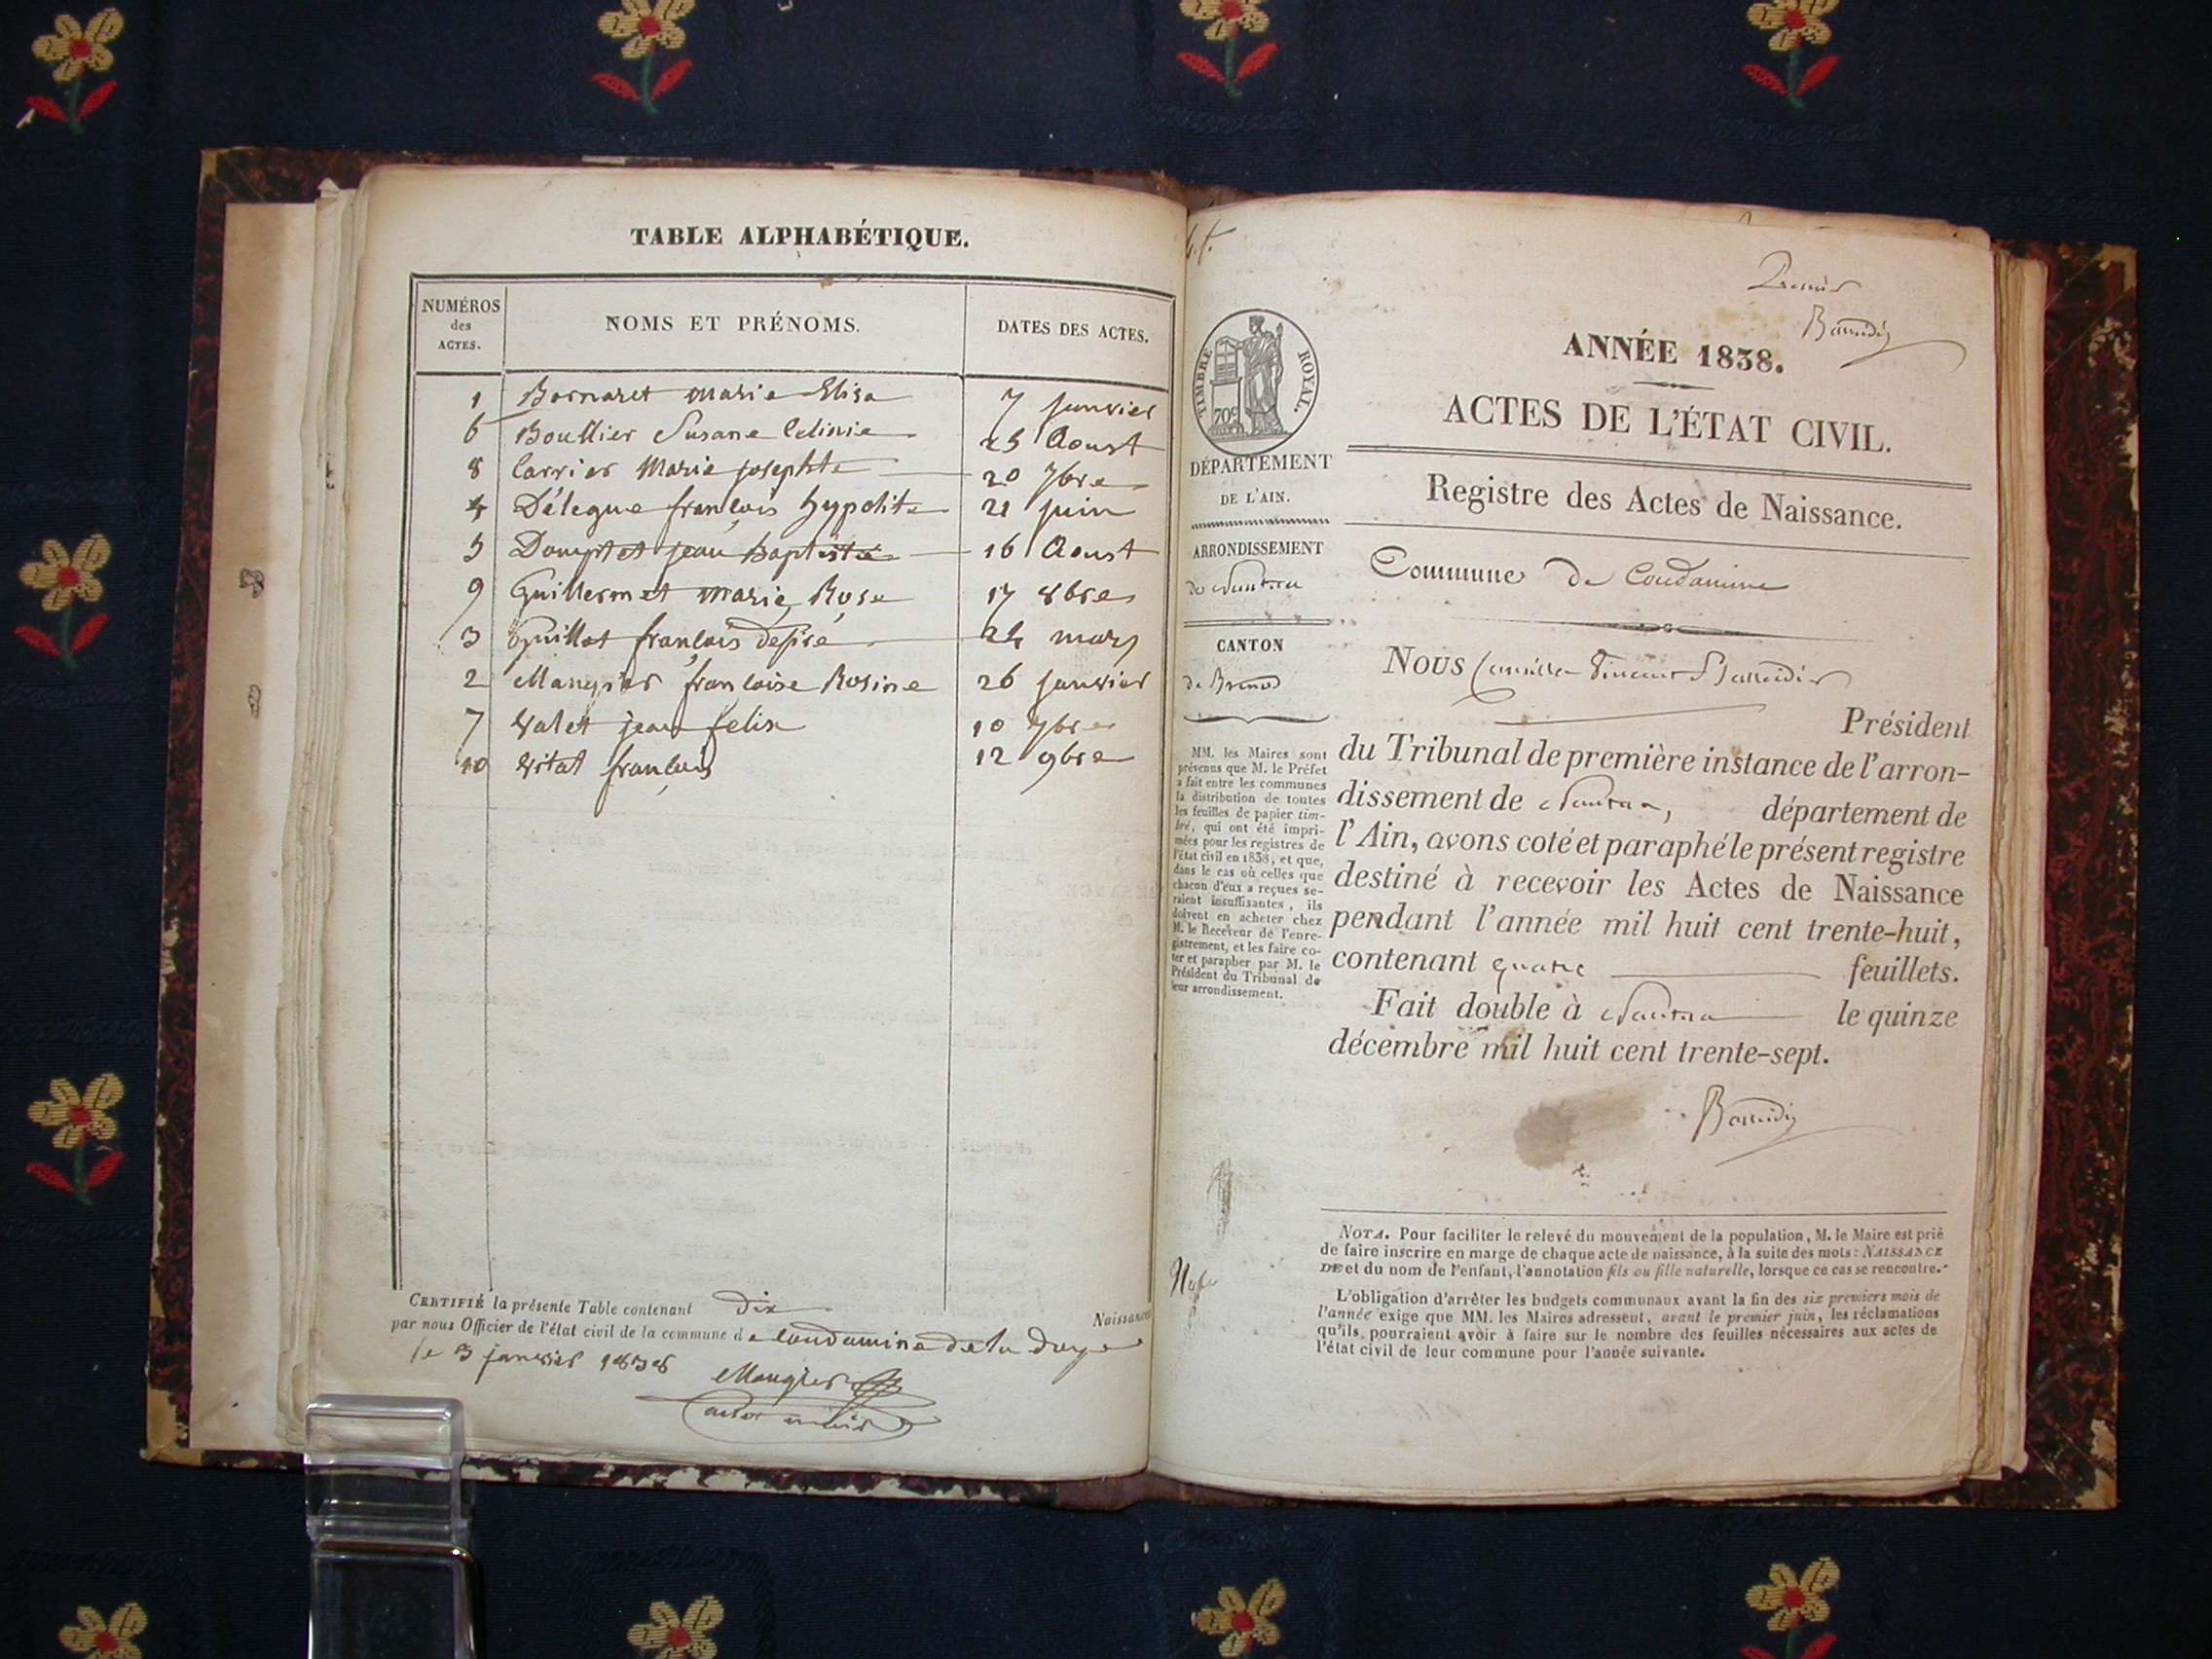 TABLE ALPHABÉTIQUE.
NUMÉROS
des
ACTES.
NOMS ET PRÉNOMS.
DATES DES ACTES.
1 Bornaret Marie Elisa 7 janvier
6 Boullier Susane Celinie 25 Aoust
8 Carrier Marie josephte 20 7bre
4 Délegue françois hypolite 21 juin
5 Domptet jean Baptiste 16 Aoust
9 Guillermet marie Rose 17 8bre
3 Guillot françois desiré 24 mars
2 Mangier françoise Rosine 26 janvier
7 Valet jean felix 10 7bre
10 Vitat françois 12 9bre
CERTIFIÉ la présente Table contenant dix Naissances
par nous Officier de l'état civil de la commune de Condamine de la doye
le 3 janvier 1838
Mangier
maire
ANNÉE 1838.
ACTES DE L'ÉTAT CIVIL.
Registre des Actes de Naissance.
TIMBRE ROYAL.
70c
DÉPARTEMENT
DE L'AIN.
ARRONDISSEMENT
de Nantua
CANTON
de Brenod
MM. les Maires sont
prévenus que M. le Préfet
a fait entre les communes
la distribution de toutes
les feuilles de papier tim-
bré, qui ont été impri-
mées pour les registres de
l'état civil en 1838, et que,
dans le cas où celles que
chacun d'eux a reçues se-
raient insuffisantes, ils
doivent en acheter chez
M. le Receveur de l'enre-
gistrement, et les faire co-
ter et parapher par M. le
Président du Tribunal de
leur arrondissement.
Commune de Condamine
NOUS Camille Vincent
Président
du Tribunal de première instance de l'arron-
dissement de Nantua, département de
l'Ain, avons coté et paraphé le présent registre
destiné à recevoir les Actes de Naissance
pendant l'année mil huit cent trente-huit,
contenant quatre feuillets.
Fait double à Nantua le quinze
décembre mil huit cent trente-sept.
NOTA. Pour faciliter le relevé du mouvement de la population, M. le Maire est prié
de faire inscrire en marge de chaque acte de naissance, à la suite des mots: NAISSANCE
DE et du nom de l'enfant, l'annotation fils ou fille naturelle, lorsque ce cas se rencontre.
L'obligation d'arrêter les budgets communaux avant la fin des six premiers mois de
l'année exige que MM. les Maires adressent, avant le premier juin, les réclamations
qu'ils pourraient avoir à faire sur le nombre des feuilles nécessaires aux actes de
l'état civil de leur commune pour l'année suivante.